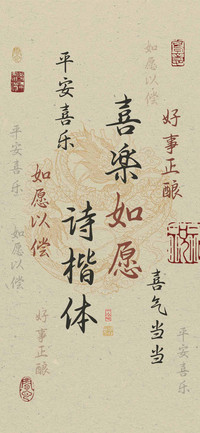 如愿以偿
平安喜乐
喜樂如愿
诗楷体
好事正酿
平安喜乐
如愿以偿
如愿以偿
喜气当当
好事正酿
平安喜乐